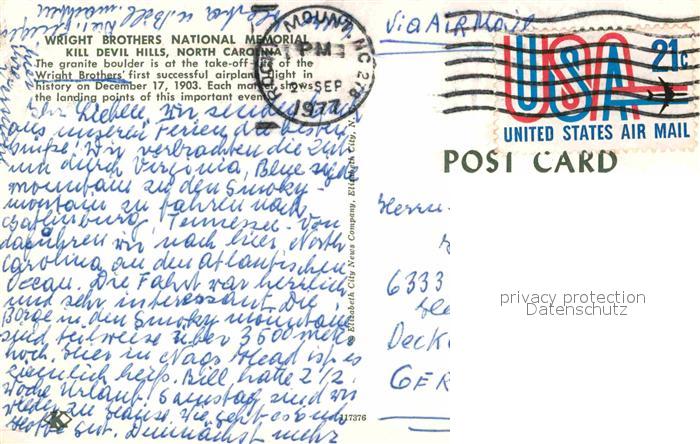 via AIR MAIL
WRIGHT BROTHERS NATIONAL MEMORIAL
KILL DEVIL HILLS, NORTH CAROLINA
The granite boulder is at the take-off of the
Wright Brothers' first successful airplane flight in
history on December 17, 1903. Each shows
the landing points of this important event
ROCKY MOUNT, NC 278
PM
2 SEP
1977
USA 21c
UNITED STATES AIR MAIL
POST CARD
Ihr Lieben, wir senden
aus unseren Ferien die besten
Grüße! Wir verbrachten die Zeit
um durch Virginia, Blue ridge
mountain zu den Smoky-
mountain zu fahren nach
Gatlinburg, Tennessee. Von
da fuhren wir nach hier, North
Carolina an den Atlantischen
Ocean. Die Fahrt war herrlich
und sehr interessant. Die
Berge in den Smoky mountains
sind teilweise über 3500 meter
hoch. Hier in Nags Head ist es
ziemlich heiß. Bill hatte 2 1/2
Woche Urlaub. Samstag sind wir
wieder zu Hause. Wie geht es Euch
Hoffe gut. Demnächst mehr
© Elizabeth City News Company, Elizabeth City, N.
117376
K
Herrn
6333
Deck
GER
privacy protection
Datenschutz